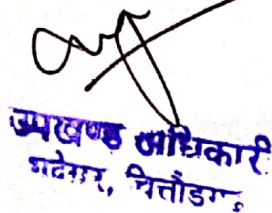 उपखण्ड अधिकारी
भदेसर, चित्तौडगढ़